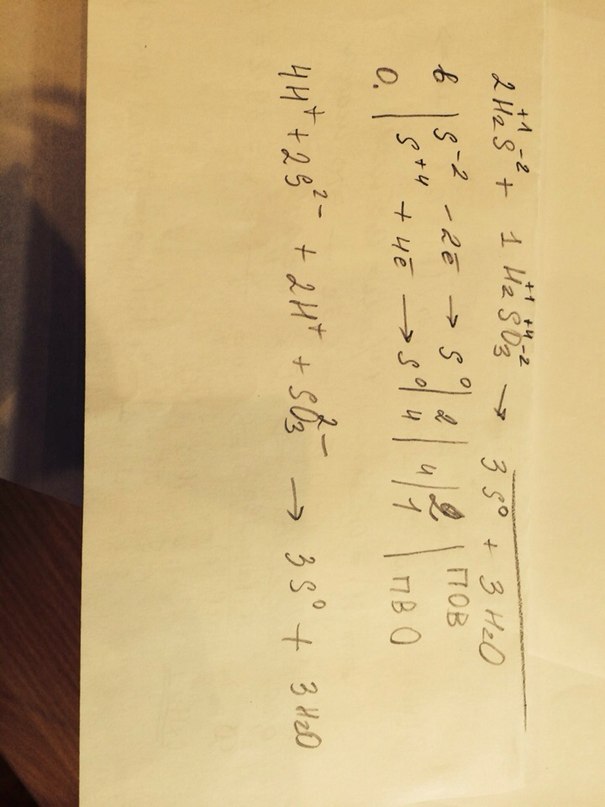 2H₂⁺¹S⁻² + 1H₂⁺¹S⁺⁴O₃⁻² → 3S⁰ + 3H₂O
в | S⁻² - 2ē → S⁰ | 2 | 4 | 2 | ПОВ
о. | S⁺⁴ + 4ē → S⁰ | 4 | 1 | ПВО
4H⁺ + 2S²⁻ + 2H⁺ + SO₃²⁻ → 3S⁰ + 3H₂O